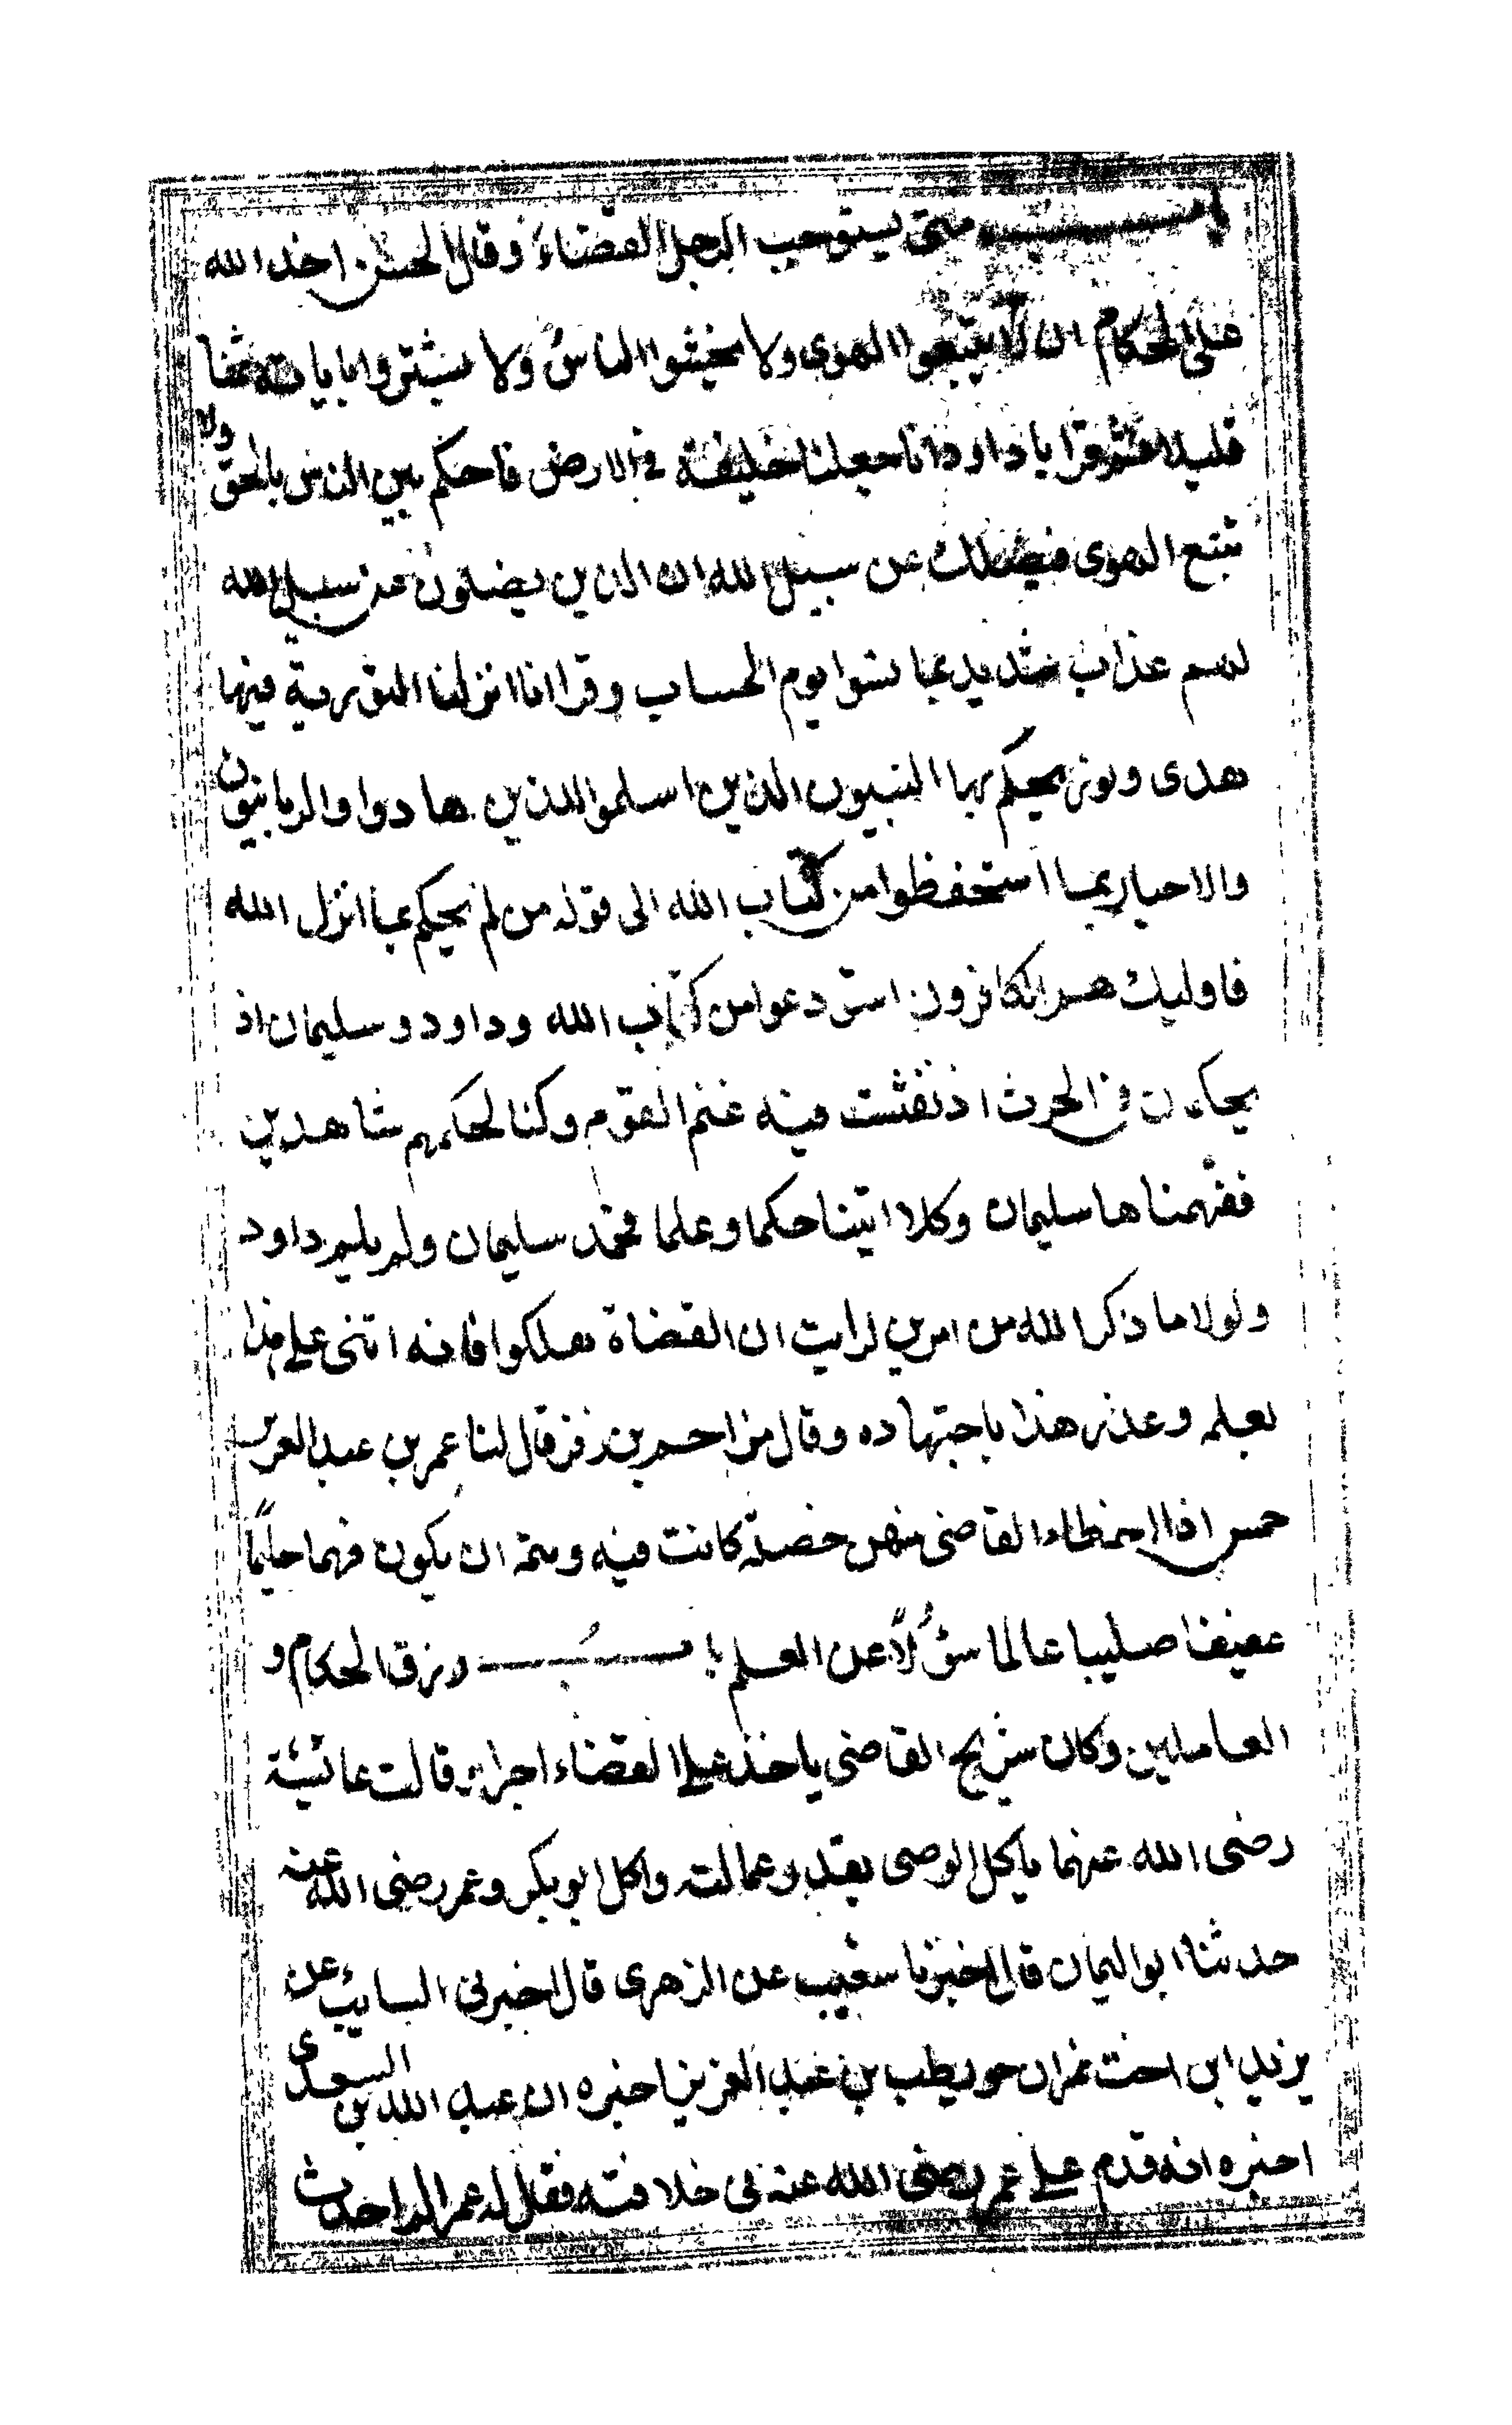 باب متى يستوجب الرجل القضاء وقال الحسن اخذ الله
على الحكام ان لا يتبعوا الهوى ولا يخشوا الناس ولا يشتروا باياته ثمنا
قليلا ثم قرا يا داود انا جعلناك خليفة في الارض فاحكم بين الناس بالحق ولا
تتبع الهوى فيضلك عن سبيل الله ان الذين يضلون عن سبيل الله
لهم عذاب شديد بما نسوا يوم الحساب وقرا انا انزلنا التورية فيها
هدى ونور يحكم بها النبيون الذين اسلموا للذين هادوا والربانيون
والاحبار بما استحفظوا من كتاب الله الى قوله من لم يحكم بما انزل الله
فاوليك هم الكافرون استودعوا من كتاب الله وداود وسليمان اذ
يحكمن في الحرث اذ نفشت فيه غنم القوم وكنا لحكمهم شاهدين
ففهمناها سليمان وكلا اتينا حكما وعلما فحمد سليمان ولم يلم داود
ولولا ما ذكر الله من امر هذين لرايت ان القضاة هلكوا فانه اثنى على هذا
بعلمه وعذر هذا باجتهاده وقال مزاحم بن زفر قال لنا عمر بن عبد العزيز
خمس اذا اخطاء القاضى منهن خصلة كانت فيه وصمة ان يكون فهما حليما
عفيفا صليبا عالما سؤلا عن العلم باب رزق الحكام و
العاملين وكان شريح القاضى ياخذ على القضاء اجرا وقالت عائشة
رضى الله عنها ياكل الوصى بقدر عمالته واكل ابو بكر وعمر رضى الله عنه
حدثنا ابو اليمان قال اخبرنا شعيب عن الزهرى قال اخبرنى السايب عن
يزيد ابن اخت نمر ان حويطب بن عبد العزيز اخبره ان عبد الله بن السعدى
اخبره انه قدم على عمر رضى الله عنه فى خلافته فقال له عمر الم احدث